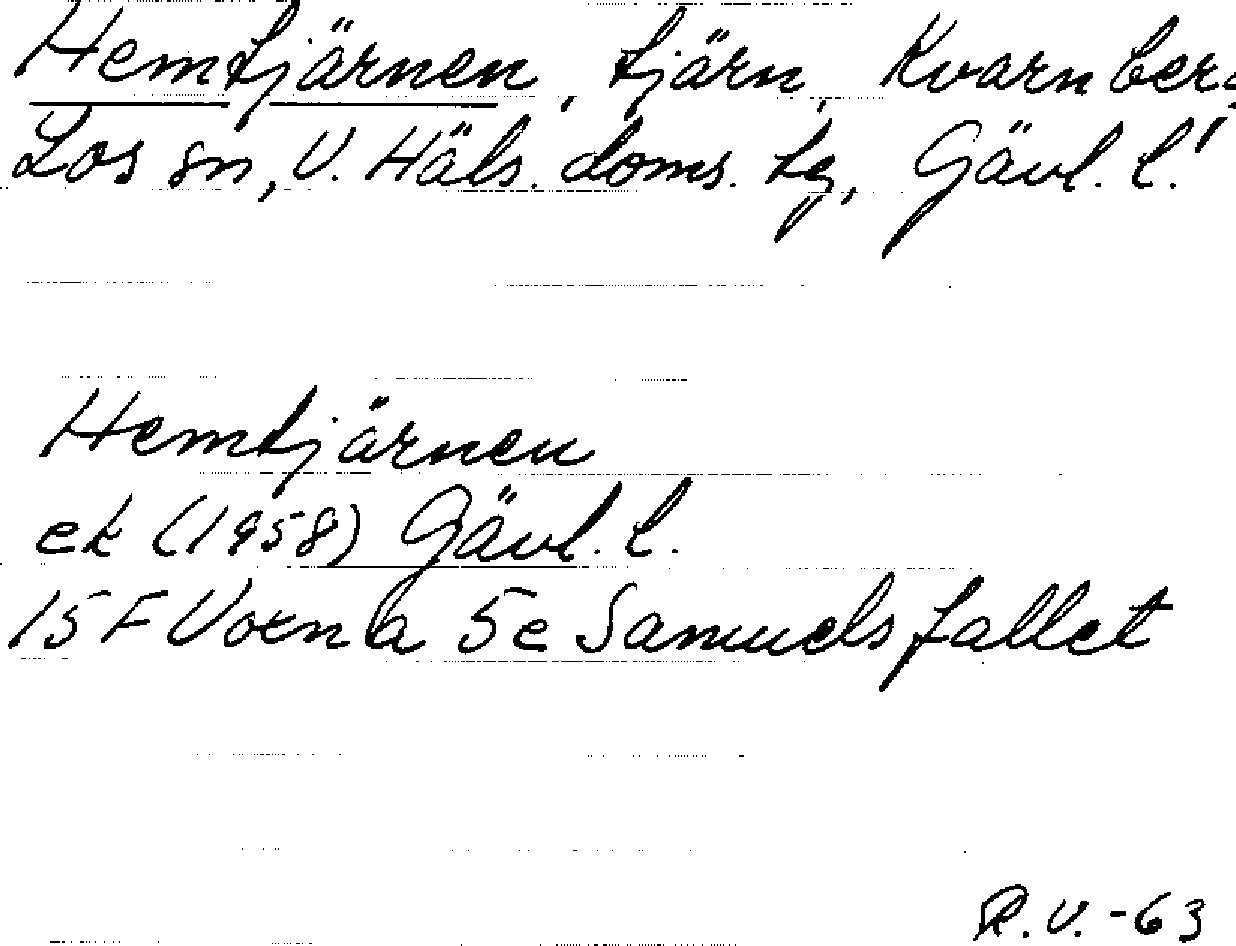 Hemtjärnen, tjärn, Kvarnberg,
Los sn, V. Häls. doms. tg, Gävl. l.
Hemtjärnen
ek (1958) Gävl. l.
15 F Voxna 5e Samuelsfallet
R.V. -63